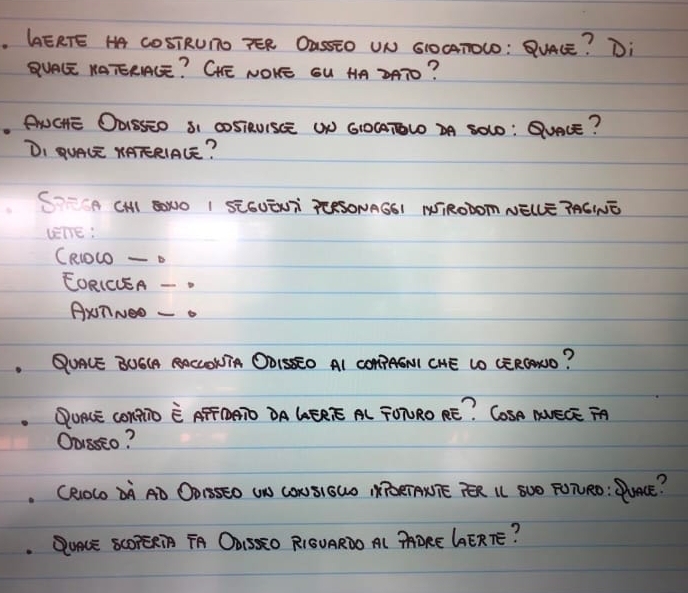 • LAERTE HA COSTRUITO PER ODISSEO UN GIOCATTOLO: QUALE? DI
QUALE MATERIALE? CHE NOME GLI HA DATO?
• ANCHE ODISSEO SI COSTRUISCE UN GIOCATTOLO DA SOLO: QUALE?
DI QUALE MATERIALE?
• SPIEGA CHI SONO I SEGUENTI PERSONAGGI INTRODOTTI NELLE PAGINE
LETTE:
CRIOLO —•
EURICLEA —•
AXITINOO —•
• QUALE BUGIA RACCONTA ODISSEO AI COMPAGNI CHE LO CERCANO?
• QUALE COMPITO È AFFIDATO DA LAERTE AL FUTURO RE? COSA INVECE FA
ODISSEO?
• CRIOLO DÀ AD ODISSEO UN CONSIGLIO IMPORTANTE PER IL SUO FUTURO: QUALE?
• QUALE SCOPERTA FA ODISSEO RIGUARDO AL PADRE LAERTE?